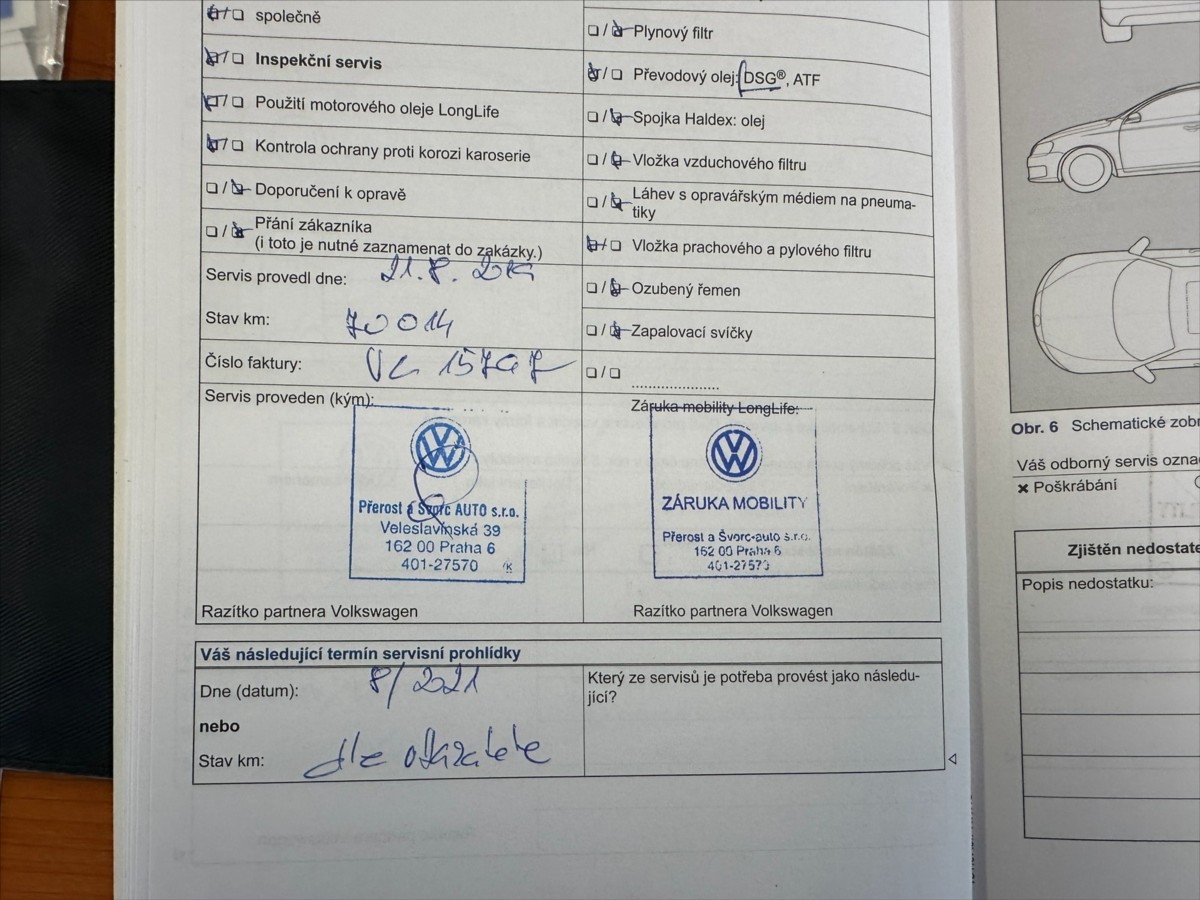 společně
Inspekční servis
Použití motorového oleje LongLife
Kontrola ochrany proti korozi karoserie
Doporučení k opravě
Přání zákazníka
(i toto je nutné zaznamenat do zakázky.)
Servis provedl dne: 21. 8. 2019
Stav km: 70014
Číslo faktury:
Servis proveden (kým):
VW
Přerost a Švorc AUTO s.r.o.
Veleslavínská 39
162 00 Praha 6
401-27570
Razítko partnera Volkswagen
Plynový filtr
Převodový olej: DSG®, ATF
Spojka Haldex: olej
Vložka vzduchového filtru
Láhev s opravářským médiem na pneuma-
tiky
Vložka prachového a pylového filtru
Ozubený řemen
Zapalovací svíčky
Záruka mobility LongLife:
VW
ZÁRUKA MOBILITY
Přerost a Švorc-auto s.r.o.
162 00 Praha 6
401-27570
Razítko partnera Volkswagen
Váš následující termín servisní prohlídky
Dne (datum): 8/2021
nebo
Stav km: dle ukazatele
Který ze servisů je potřeba provést jako následu-
jící?
Obr. 6 Schematické zobr
Váš odborný servis označ
Poškrábání
Zjištěn nedostate
Popis nedostatku: